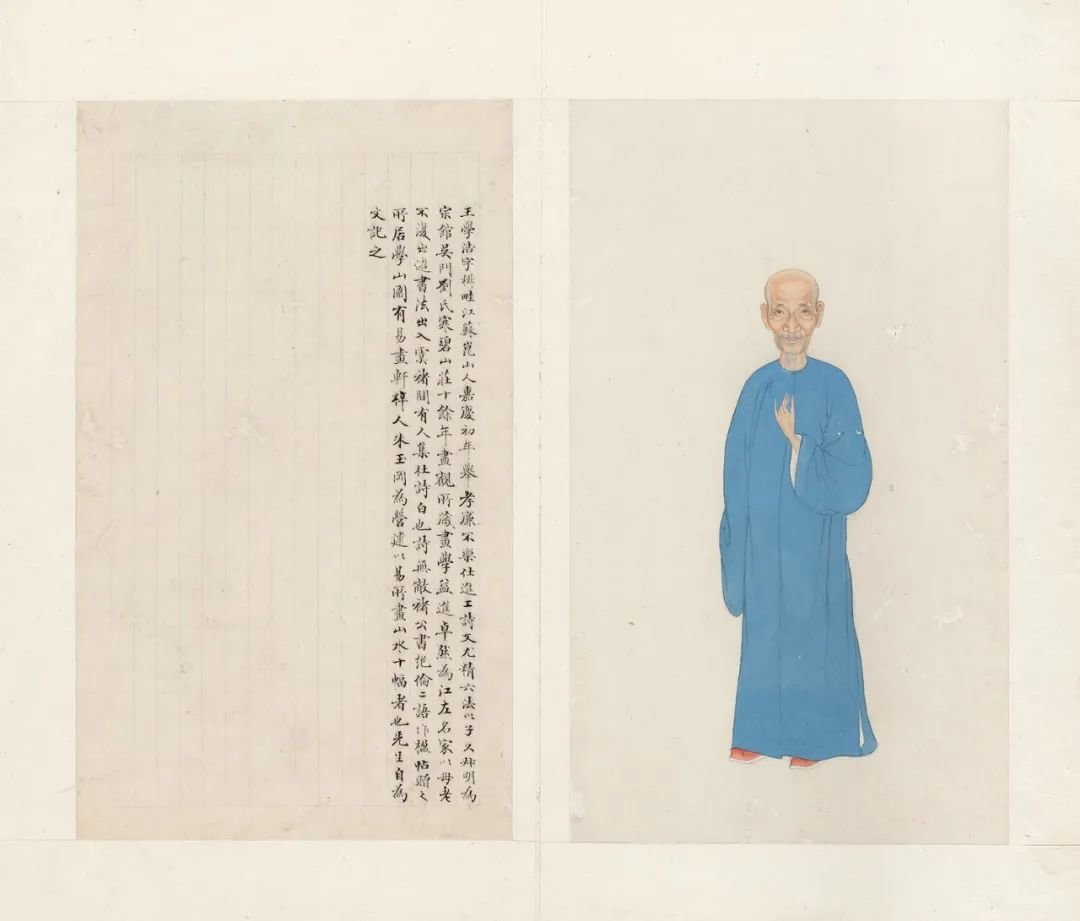 王學浩字椒畦江蘇崑山人嘉慶初年舉孝廉不樂仕進工詩文尤精六法以子久叔明為
宗館吳門劉氏寒碧山莊十餘年盡觀所藏畫學益進卓然為江左名家以母老
不復出遊書法出入虞褚間有人集杜詩白也詩無敵褚公書絕倫二語作楹帖贈之
所居學山園有易畫軒梓人朱玉岡為營建以易所畫山水十幅者也先生自為
文記之